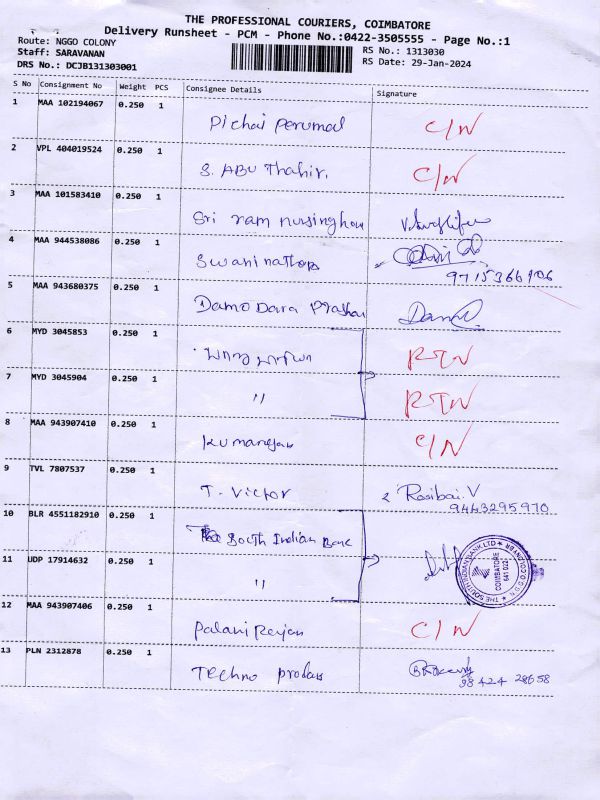 THE PROFESSIONAL COURIERS, COIMBATORE
Delivery Runsheet - PCM - Phone No.:0422-3505555 - Page No.:1
Route: NGGO COLONY RS No.: 1313030
Staff: SARAVANAN RS Date: 29-Jan-2024
DRS No.: DCJB131303001
S No Consignment No Weight PCS Consignee Details Signature
1 MAA 102194067 0.250 1
Pichai Perumal C/N
2 VPL 404019524 0.250 1
S. ABU Thahir. C/N
3 MAA 101583410 0.250 1
Sri ram nursinghan
4 MAA 944538086 0.250 1
Swaninathan
9715366906
5 MAA 943680375 0.250 1
DamoDara Prashan
6 MYD 3045853 0.250 1
RTN
7 MYD 3045904 0.250 1
" RTN
8 MAA 943907410 0.250 1
Kumaragan C/N
9 TVL 7807537 0.250 1
T. Victor Rosibai. V
9443295970
10 BLR 4551182910 0.250 1
South Indian Bank
11 UDP 17914632 0.250 1
"
THE SOUTH INDIAN BANK LTD
COIMBATORE
641 022
12 MAA 943907406 0.250 1
Palani Rajan C/N
13 PLN 2312878 0.250 1
Techno
98424 28658